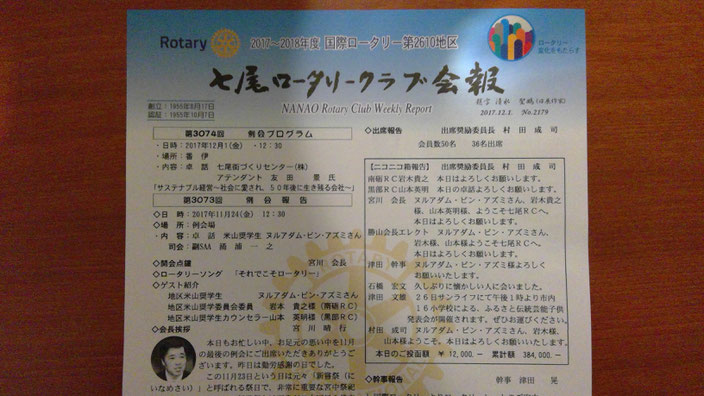 Rotary
2017～2018年度 国際ロータリー第2610地区
ロータリー：
変化をもたらす
七尾ロータリークラブ会報
創立：1955年6月17日
認証：1955年10月7日
NANAO Rotary Club Weekly Report
2017.12.1. No.2179
第3074回 例会プログラム
・日時：2017年12月1(金) ・12：30
・場所：番 伊
・内容：卓 話 七尾街づくりセンター(株)
アテンダント 友 田 景氏
「サステナブル経営～社会に愛され、50年後に生き残る会社～」
第3073回 例 会 報 告
◇日 時：2017年11月24(金) 12：30
◇場 所：例会場
・内 容：卓 話 米山奨学生 ヌルアダム・ビン・アズミさん
司会：副SAA 涌 浦 一 之
◇開会点鍾 宮川 会長
◇ロータリーソング 「それでこそロータリー」
◇ゲスト紹介
地区米山奨学生 ヌルアダム・ビン・アズミさん
地区米山奨学委員会委員 岩木 貴之様(南砺RC)
地区米山奨学生カウンセラー山本 英明様(黒部RC)
◇会長挨拶 宮 川 晴 行
本日もお忙しい中、お足元の悪い中を11月
の最後の例会にご出席いただきありがとうご
ざいます。昨日は勤労感謝の日でした。
この11月23日という日は元々「新嘗祭（に
いなめさい）」と呼ばれる祭日で、非常に重要な宮中祭祀
◇出席報告 出席奨励委員長 村 田 成 司
会員数50名 36名出席
【ニコニコ箱報告】 出席奨励委員長 村 田 成 司
南砺RC岩木貴之 本日はよろしくお願いします。
黒部RC山本英明 本日の卓話よろしくお願いします。
宮川 会長 ヌルアダム・ビン・アズミさん、岩木貴之
様、山本英明様、ようこそ七尾RCへ。
本日はよろしくお願いします。
勝山会長エレクト ヌルアダム・ビン・アズミさん、
岩木様、山本様ようこそ七尾RCへ。
本日はよろしくお願いします。
津田 幹事 ヌルアダム・ビン・アズミ様よろしく
お願いいたします。
石橋 宏文 久しぶりに懐かしい人に会いました。
津田 文雄 26日サンライフにて午後1時より市内
16小学校による、ふるさと伝統芸能子供
発表会が開催されます。ぜひお運びください。
村田 成司 ヌルアダム・ビン・アズミさん、岩木様、
山本様ようこそ。本日はよろしくお願いします。
本日のご投函額 ¥ 12,000.- 累計額 384,000.-
◇幹事報告 幹事 津田 晃